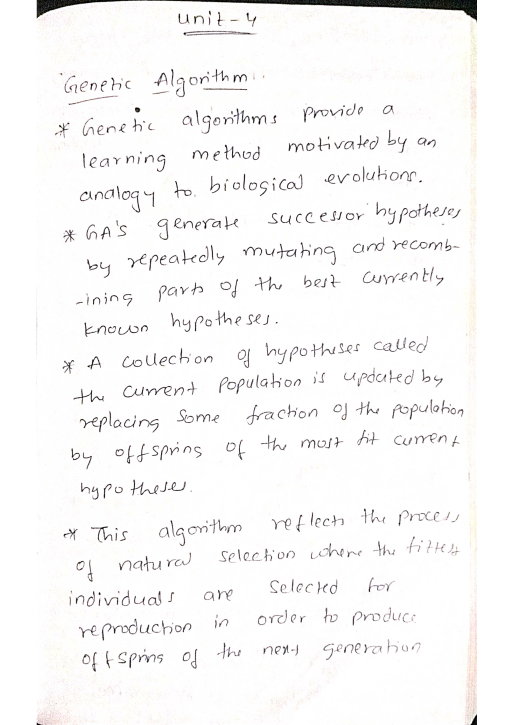 Unit-4
Genetic Algorithm..
* Genetic algorithms provide a
learning method motivated by an
analogy to biological evolutions.
* GA's generate successor hypotheses
by repeatedly mutating and recomb-
-ining parts of the best currently
known hypotheses.
* A collection of hypotheses called
the current population is updated by
replacing some fraction of the population
by offspring of the most fit current
hypotheses.
* This algorithm reflects the process
of natural selection where the fittest
individuals are selected for
reproduction in order to produce
offspring of the next generation